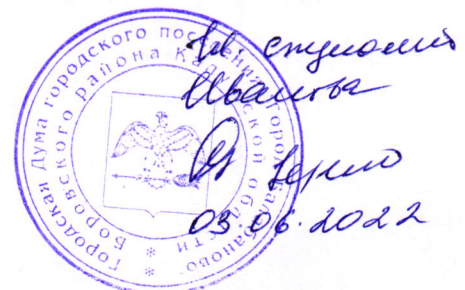 Городская Дума городского поселения город Балабаново
Боровского района Калужской области
Иванова
Верно
03.06.2022